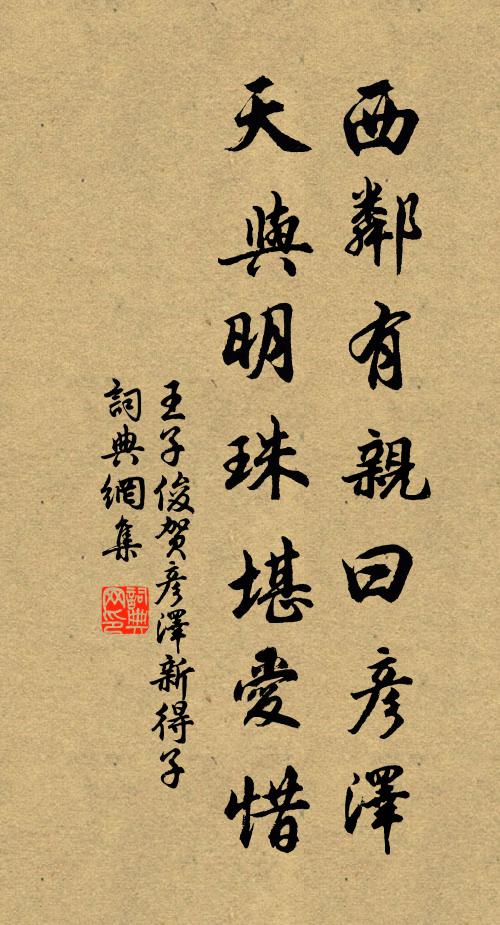 西鄰有親曰彥澤
天與明珠堪愛惜
王子俊賀彥澤新得子
詞典網集
詞典网印